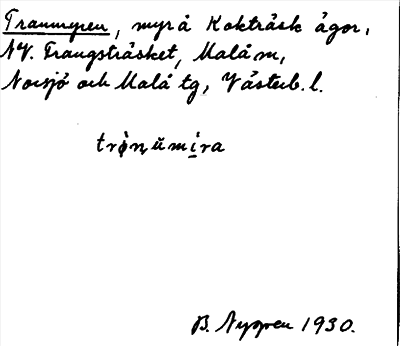 Tranumyren, myr å Kokträsk ägor,
NV. Trangsträsket, Malå sn,
Norsjö och Malå tg, Västerb. l.
trǫ̀nŭmi̱ra
B. Nygren 1930.